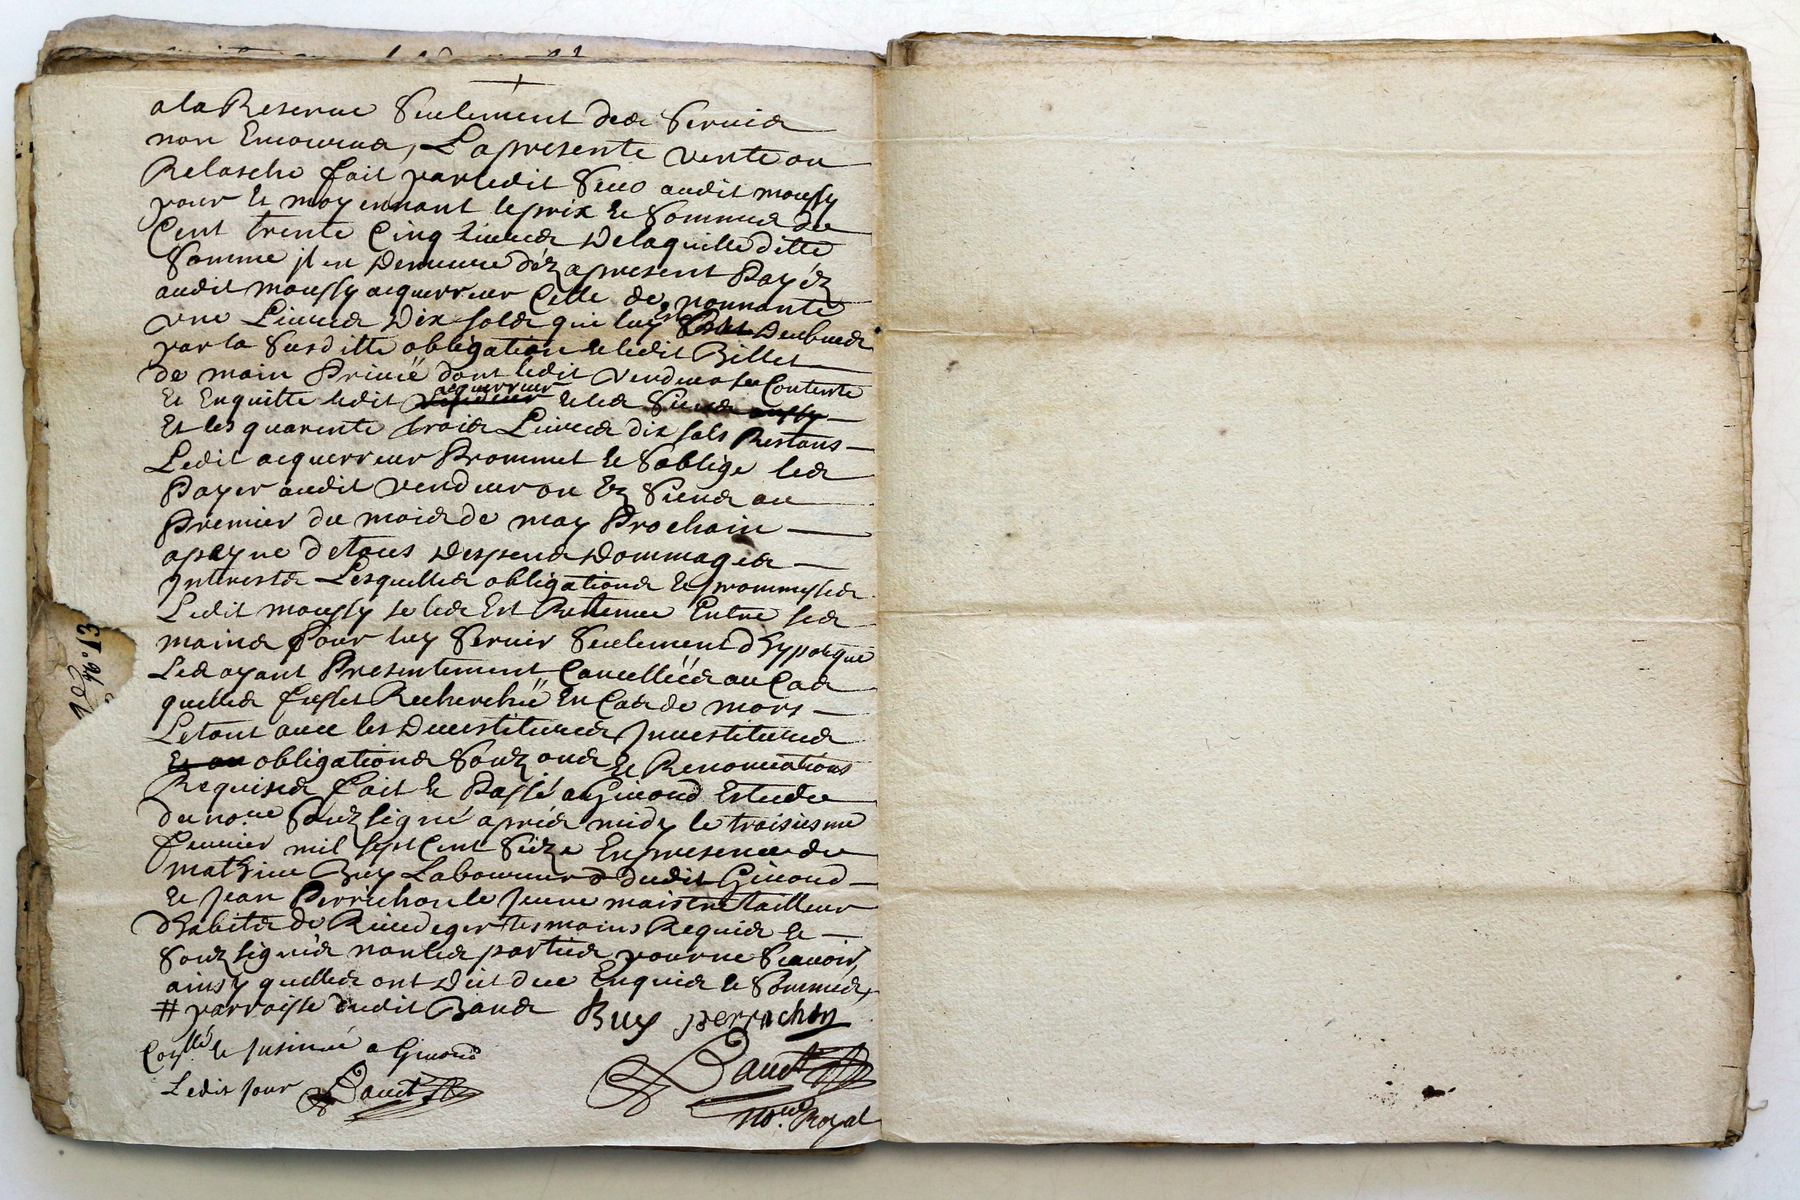 a la Reserue Seulement des Seruis
non Encourus, La presente vente ou
Relasche fait par ledit Seuo audit moussy
pour & moyennant le prix & Somme de
Cent trente Cinq liures De laquelle ditte
Somme il en Demeure déz apresent Payéz
audit moussy acquerreur Celle de nonnante
vne Liures Dix sols qui luy Deubues
par la Susditte obligation & ledit Billet
de main Priuée dont ledit Vendeur se Contente
Et Enquitte ledit acquerreur & les Siens
Et les quarente trois Liures dix sols Restans
Ledit acquerreur Prommet & Soblige les
Payer audit Vendeur ou ez Siens au
Premier du mois de may Prochain
a peyne de tous Despens Dommages
Interests Lesquelles obligations & prommesses
Ledit moussy se les Est Rettenue Entre ses
mains Pour luy Seruir Seulement dHypoteque
Les ayant Presentement Cancellées au Cas
quelles fusset Recherchée En Cas de mors
Le tout auec les Deuestitures Inuestitures
obligations Soubz ons & Renonciations
Requises fait & Passé a Giuord Estude
du no.re Soubzsigné aprés midy le troisiesme
feurier mil sept Cent Seize En presence de
mathieu Buy Laboureur dudit Giuord
& Jean Perrichon le Jeune maistre tailleur
dhabits de Riuedegier tesmoins Requis &
Soubzsignés non les parties pour ne Scauoir
ainsy quelles ont Dit due Enquis & Sommés
# parroisse dudit Bans
Buy perrichon
Con.llé & Insinué a Giuord
Ledit Jour
no.re Royal
No. 13